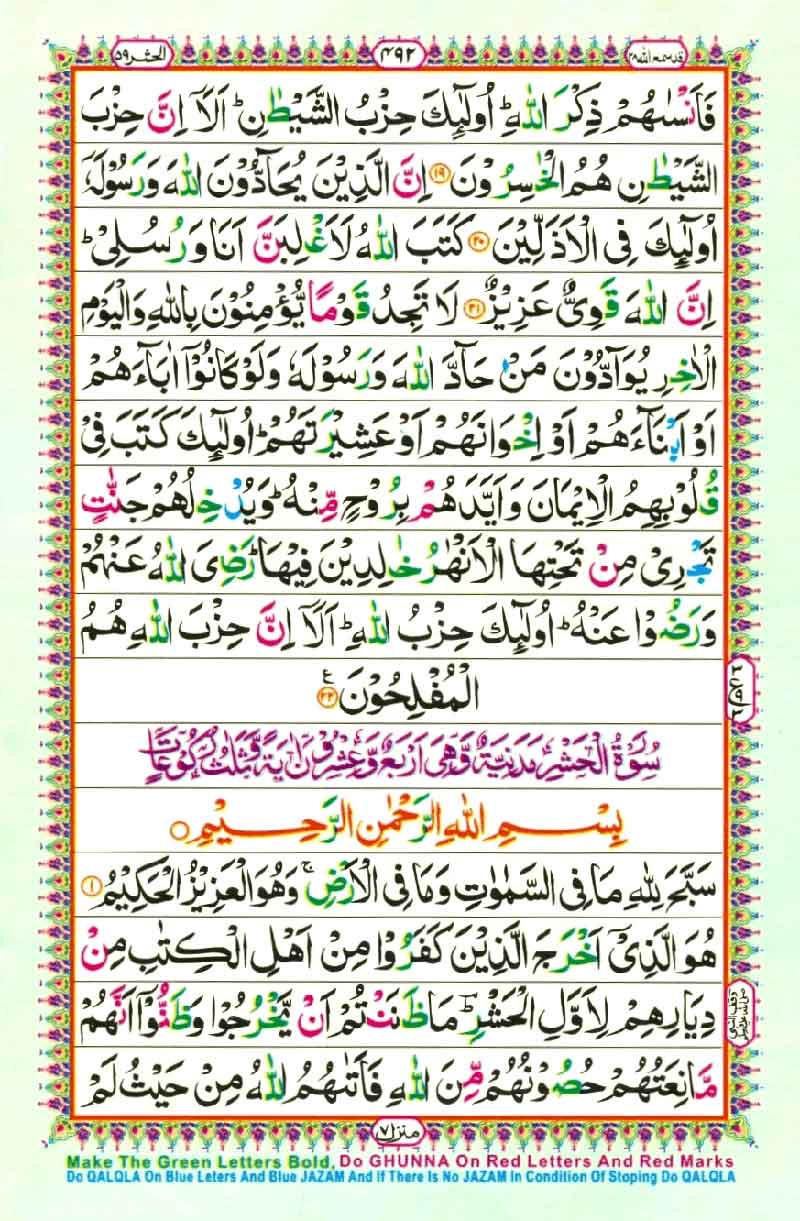 قدسمع الله ٢٨
٤٩٢
الحشر ٥٩
فَاَنْسٰىهُمْ ذِكْرَ اللّٰهِ ؕ اُولٰٓئِكَ حِزْبُ الشَّيْطٰنِ ؕ اَلَاۤ اِنَّ حِزْبَ
الشَّيْطٰنِ هُمُ الْخٰسِرُوْنَ ﴿۱۹﴾ اِنَّ الَّذِيْنَ يُحَآدُّوْنَ اللّٰهَ وَ رَسُوْلَهٗۤ
اُولٰٓئِكَ فِى الْاَذَلِّيْنَ ﴿۲۰﴾ كَتَبَ اللّٰهُ لَاَغْلِبَنَّ اَنَا وَ رُسُلِىْ ؕ
اِنَّ اللّٰهَ قَوِىٌّ عَزِيْزٌ ﴿۲۱﴾ لَا تَجِدُ قَوْمًا يُّؤْمِنُوْنَ بِاللّٰهِ وَ الْيَوْمِ
الْاٰخِرِ يُوَآدُّوْنَ مَنْ حَآدَّ اللّٰهَ وَ رَسُوْلَهٗ وَ لَوْ كَانُوْۤا اٰبَآءَهُمْ
اَوْ اَبْنَآءَهُمْ اَوْ اِخْوَانَهُمْ اَوْ عَشِيْرَتَهُمْ ؕ اُولٰٓئِكَ كَتَبَ فِىْ
قُلُوْبِهِمُ الْاِيْمَانَ وَ اَيَّدَهُمْ بِرُوْحٍ مِّنْهُ ؕ وَ يُدْخِلُهُمْ جَنّٰتٍ
تَجْرِىْ مِنْ تَحْتِهَا الْاَنْهٰرُ خٰلِدِيْنَ فِيْهَا ؕ رَضِىَ اللّٰهُ عَنْهُمْ
وَ رَضُوْا عَنْهُ ؕ اُولٰٓئِكَ حِزْبُ اللّٰهِ ؕ اَلَاۤ اِنَّ حِزْبَ اللّٰهِ هُمُ
الْمُفْلِحُوْنَ ﴿۲۲﴾ ع
سُوْرَةُ الْحَشْرِ مَدَنِيَّةٌ وَّهِىَ اَرْبَعٌ وَّعِشْرُوْنَ اٰيَةً وَّثَلٰثُ رُكُوْعَاتٍ
بِسْمِ اللّٰهِ الرَّحْمٰنِ الرَّحِيْمِ
سَبَّحَ لِلّٰهِ مَا فِى السَّمٰوٰتِ وَ مَا فِى الْاَرْضِ ۚ وَ هُوَ الْعَزِيْزُ الْحَكِيْمُ ﴿۱﴾
هُوَ الَّذِىْۤ اَخْرَجَ الَّذِيْنَ كَفَرُوْا مِنْ اَهْلِ الْكِتٰبِ مِنْ
دِيَارِهِمْ لِاَوَّلِ الْحَشْرِ ؔؕ مَا ظَنَنْتُمْ اَنْ يَّخْرُجُوْا وَ ظَنُّوْۤا اَنَّهُمْ
مَّانِعَتُهُمْ حُصُوْنُهُمْ مِّنَ اللّٰهِ فَاَتٰىهُمُ اللّٰهُ مِنْ حَيْثُ لَمْ
منزل ٧
Make The Green Letters Bold, Do GHUNNA On Red Letters And Red Marks
Do QALQLA On Blue Leters And Blue JAZAM And If There Is No JAZAM In Condition Of Stoping Do QALQLA